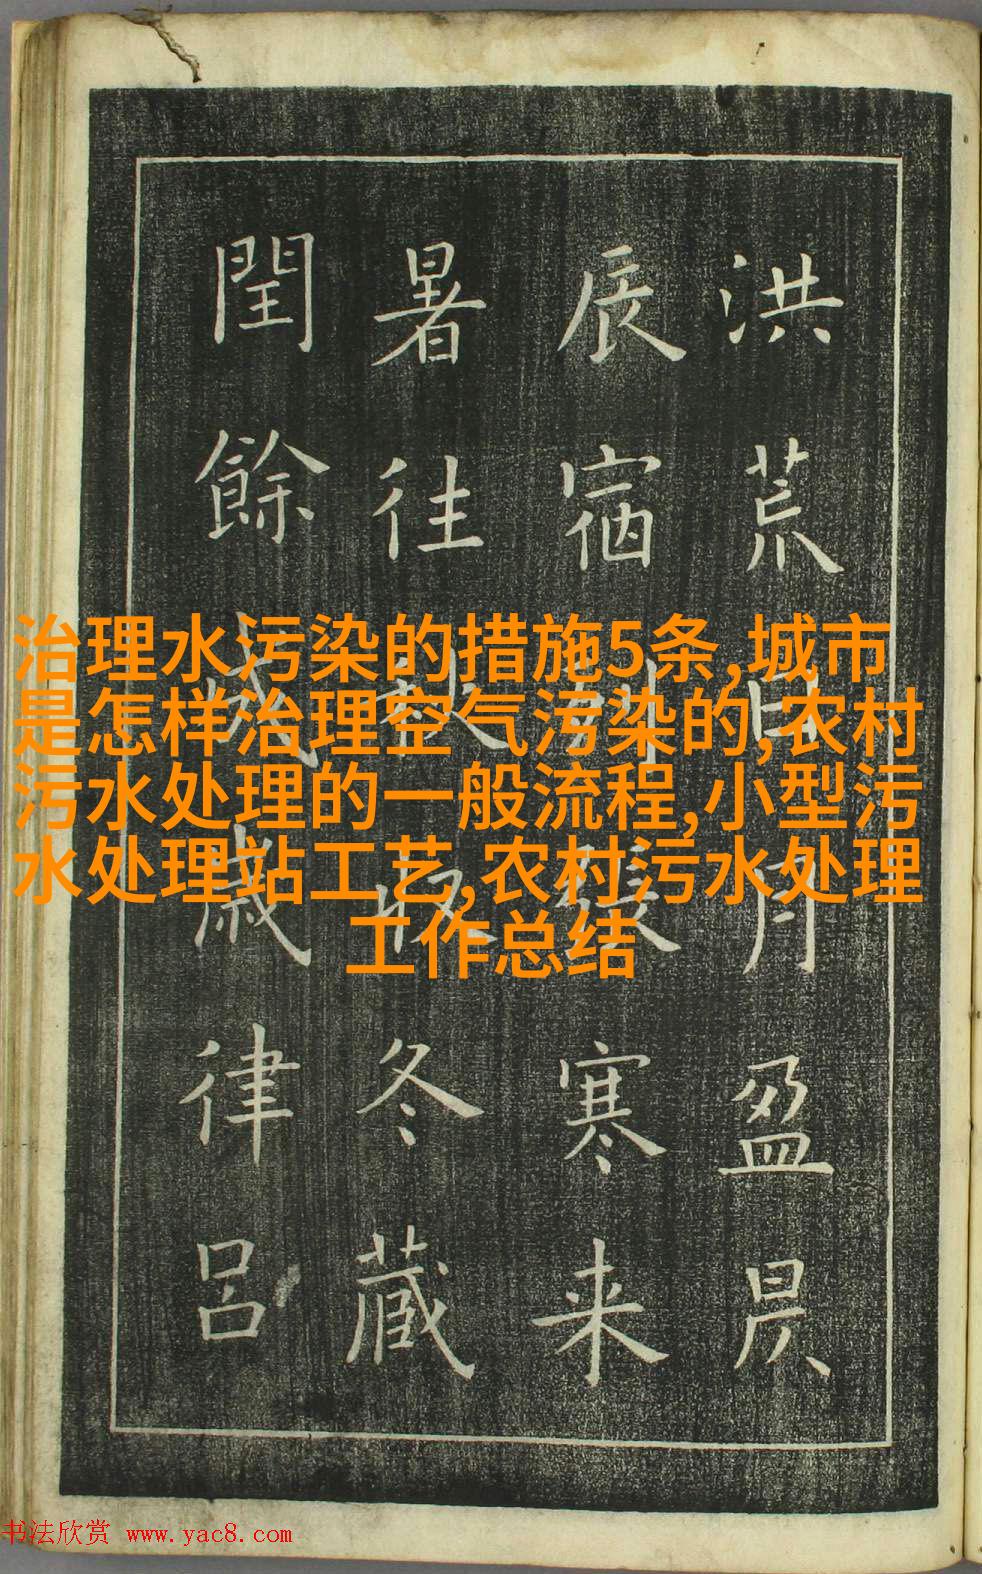 洪荒日月盈昃
辰宿列張寒来
暑往秋收冬藏
閏餘成歲律呂
治理水污染的措施5条,城市
是怎样治理空气污染的,农村
污水处理的一般流程,小型污
水处理站工艺,农村污水处理
工作总结
书法欣赏 www.yac8.com